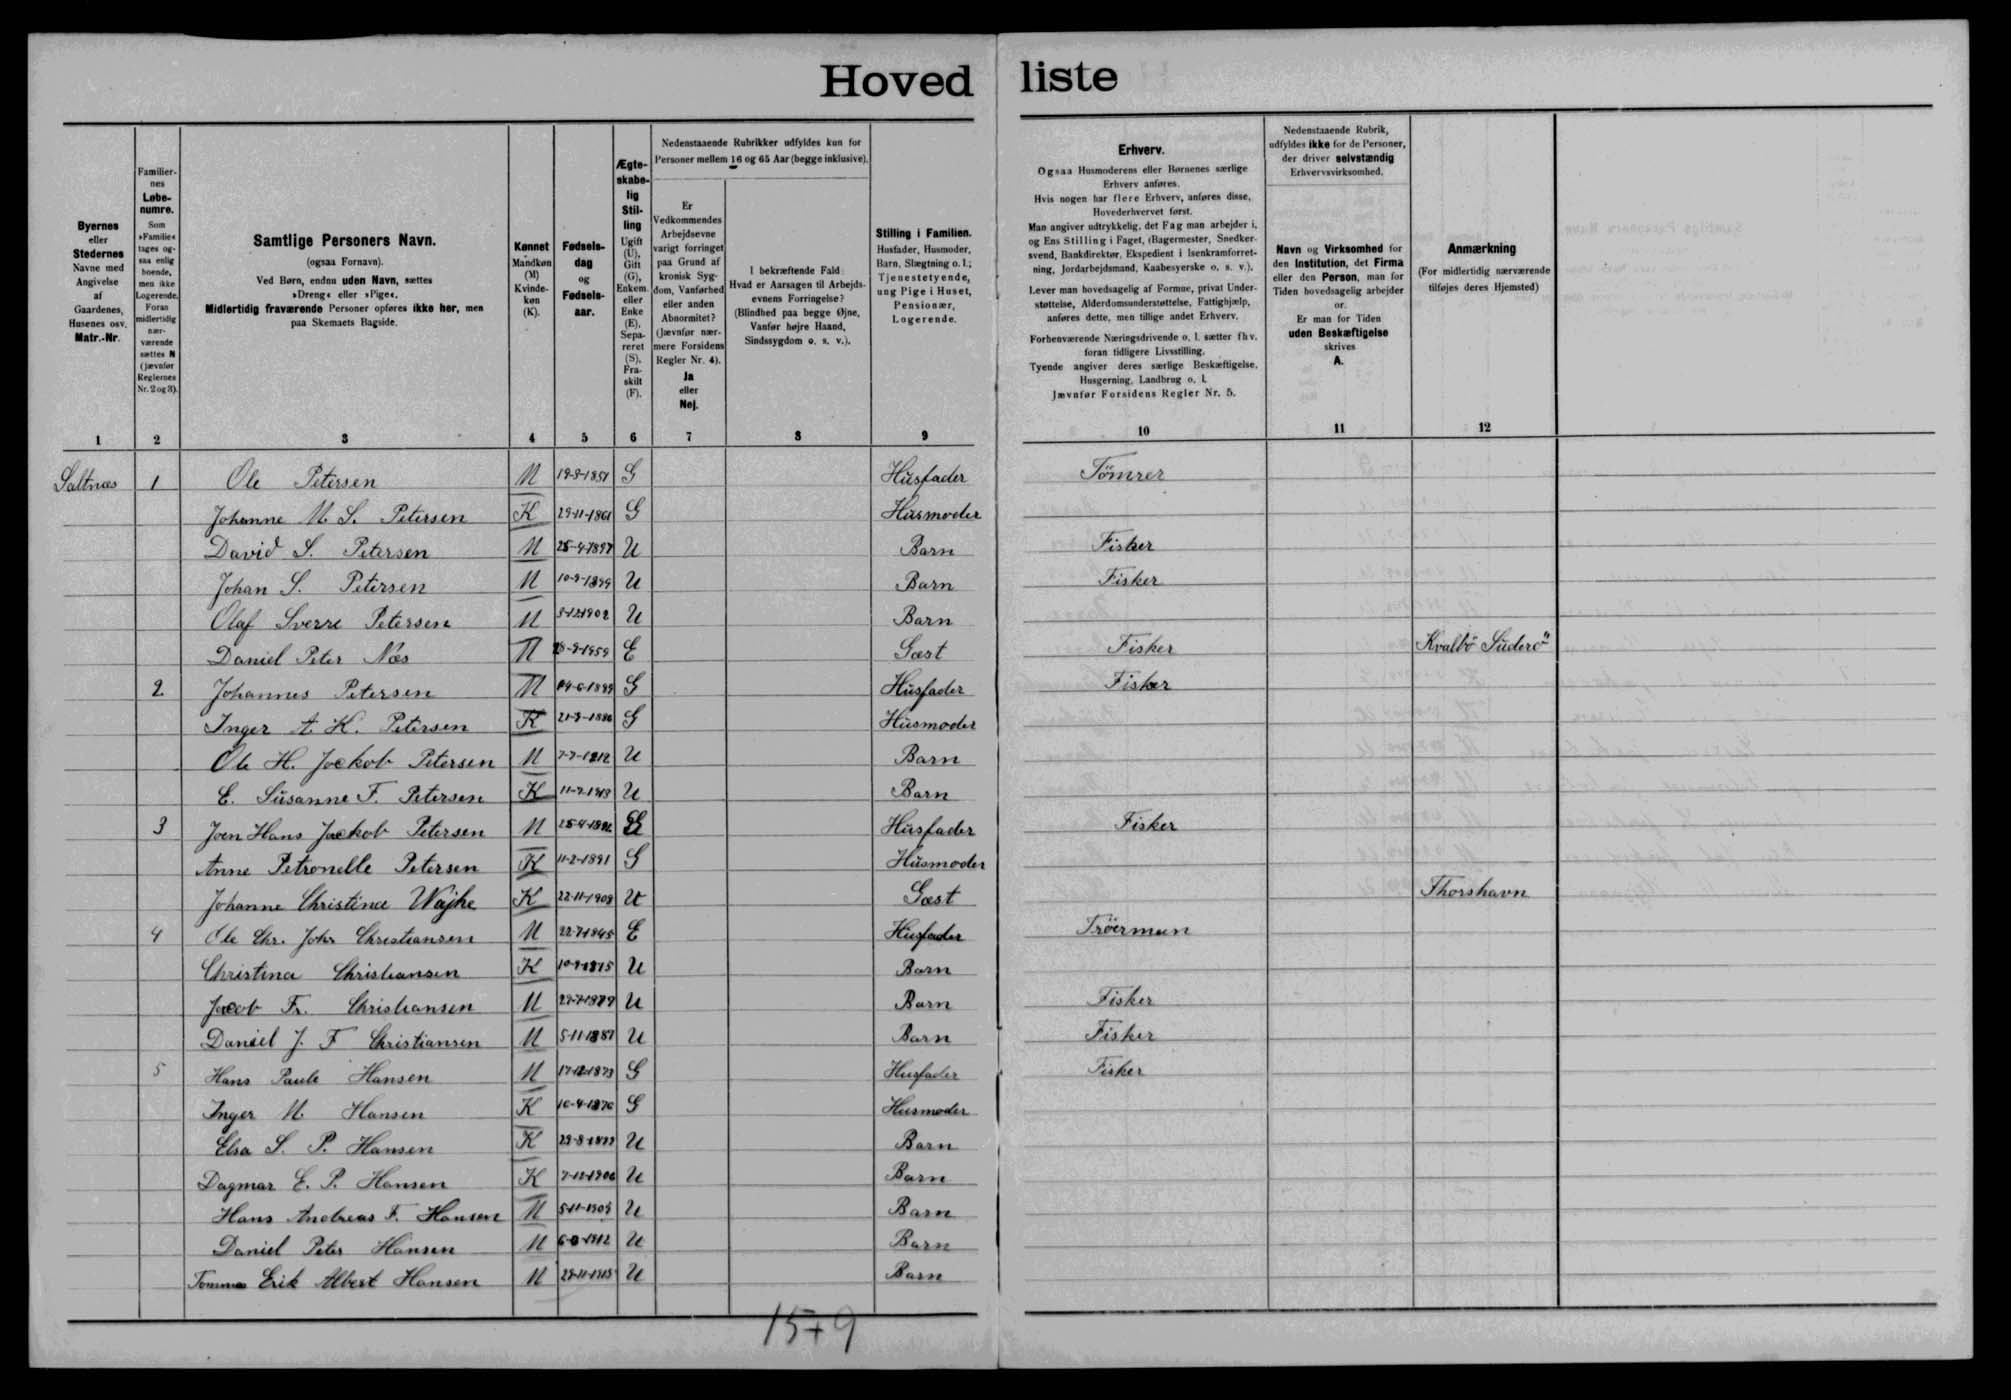 Hovedliste
Byernes
eller
Stedernes
Navne med
Angivelse
af
Gaardenes,
Husenes osv.
Matr.-Nr.
Familier-
nes
Løbe-
numre.
Som
»Familie«
tages og-
saa enlig
boende,
men ikke
Logerende.
Foran
midlertidig
nær-
værende
sættes N
(jævnfør
Reglernes
Nr. 2 og 3).
Samtlige Personers Navn.
(ogsaa Fornavn).
Ved Børn, endnu uden Navn, sættes
»Dreng« eller »Pige«.
Midlertidig fraværende Personer opføres ikke her, men
paa Skemaets Bagside.
Kønnet
Mandkøn
(M)
Kvinde-
køn
(K).
Fødsels-
dag
og
Fødsels-
aar.
Ægte-
skabe-
lig
Stil-
ling
Ugift
(U),
Gift
(G),
Enkem.
eller
Enke
(E),
Sepa-
reret
(S),
Fra-
skilt
(F).
Nedenstaaende Rubrikker udfyldes kun for
Personer mellem 16 og 65 Aar (begge inklusive).
Er
Vedkommendes
Arbejdsevne
varigt forringet
paa Grund af
kronisk Syg-
dom, Vanførhed
eller anden
Abnormitet?
(Jævnfør nær-
mere Forsidens
Regler Nr. 4).
Ja
eller
Nej.
I bekræftende Fald:
Hvad er Aarsagen til Arbejds-
evnens Forringelse?
(Blindhed paa begge Øjne,
Vanfør højre Haand,
Sindssygdom o. s. v.).
Stilling i Familien.
Husfader, Husmoder,
Barn, Slægtning o. l.;
Tjenestetyende,
ung Pige i Huset,
Pensionær,
Logerende.
Erhverv.
Ogsaa Husmoderens eller Børnenes særlige
Erhverv anføres.
Hvis nogen har flere Erhverv, anføres disse,
Hovederhvervet først.
Man angiver udtrykkelig, det Fag man arbejder i,
og Ens Stilling i Faget, (Bagermester, Snedker-
svend, Bankdirektør, Ekspedient i Isenkramforret-
ning, Jordarbejdsmand, Kaabesyerske o. s. v.).
Lever man hovedsagelig af Formue, privat Under-
støttelse, Alderdomsunderstøttelse, Fattighjælp,
anføres dette, men tillige andet Erhverv.
Forhenværende Næringsdrivende o. l. sætter fhv.
foran tidligere Livsstilling.
Tyende angiver deres særlige Beskæftigelse,
Husgerning, Landbrug o. l.
Jævnfør Forsidens Regler Nr. 5.
Nedenstaaende Rubrik,
udfyldes ikke for de Personer,
der driver selvstændig
Erhvervsvirksomhed.
Navn og Virksomhed for
den Institution, det Firma
eller den Person, man for
Tiden hovedsagelig arbejder
for.
Er man for Tiden
uden Beskæftigelse
skrives
A.
Anmærkning
(For midlertidig nærværende
tilføjes deres Hjemsted)
1 2 3 4 5 6 7 8 9 10 11 12
Saltnæs 1 Ole Petersen M G Husfader Tömrer
Johanne M. S. Petersen K 29-11-1861 G Husmoder
David S. Petersen M U Barn Fisker
Johan S. Petersen M 10-9-1899 U Barn Fisker
Olaf Sverre Petersen M U Barn
Daniel Peter Næs M E Gæst Fisker Kvalbö Süderö
2 Johannes Petersen M G Husfader Fisker
Inger A. K. Petersen K G Husmoder
Ole H. Jackob Petersen M U Barn
E. Süsanne F. Petersen K U Barn
3 Joen Hans Jackob Petersen M Husfader Fisker
Anne Petronelle Petersen K 11-2-1891 G Husmoder
Johanne Christina K 22-11-1908 U Gæst Thorshavn
4 Ole Chr. Johs Christiansen M 22-7-1845 E Husfader
Christina Christiansen K U Barn
Jacob Fr. Christiansen M U Barn Fisker
Daniel J. F Christiansen M 5-11-1887 U Barn Fisker
5 Hans Paule Hansen M 17-12-1873 G Husfader Fisker
Inger M. Hansen K G Husmoder
Elsa S. P. Hansen K U Barn
Dagmar E. P. Hansen K U Barn
Hans Andreas F. Hansen M 5-11-1909 U Barn
Daniel Peter Hansen M U Barn
Tommas Erik Albert Hansen M U Barn
15+9